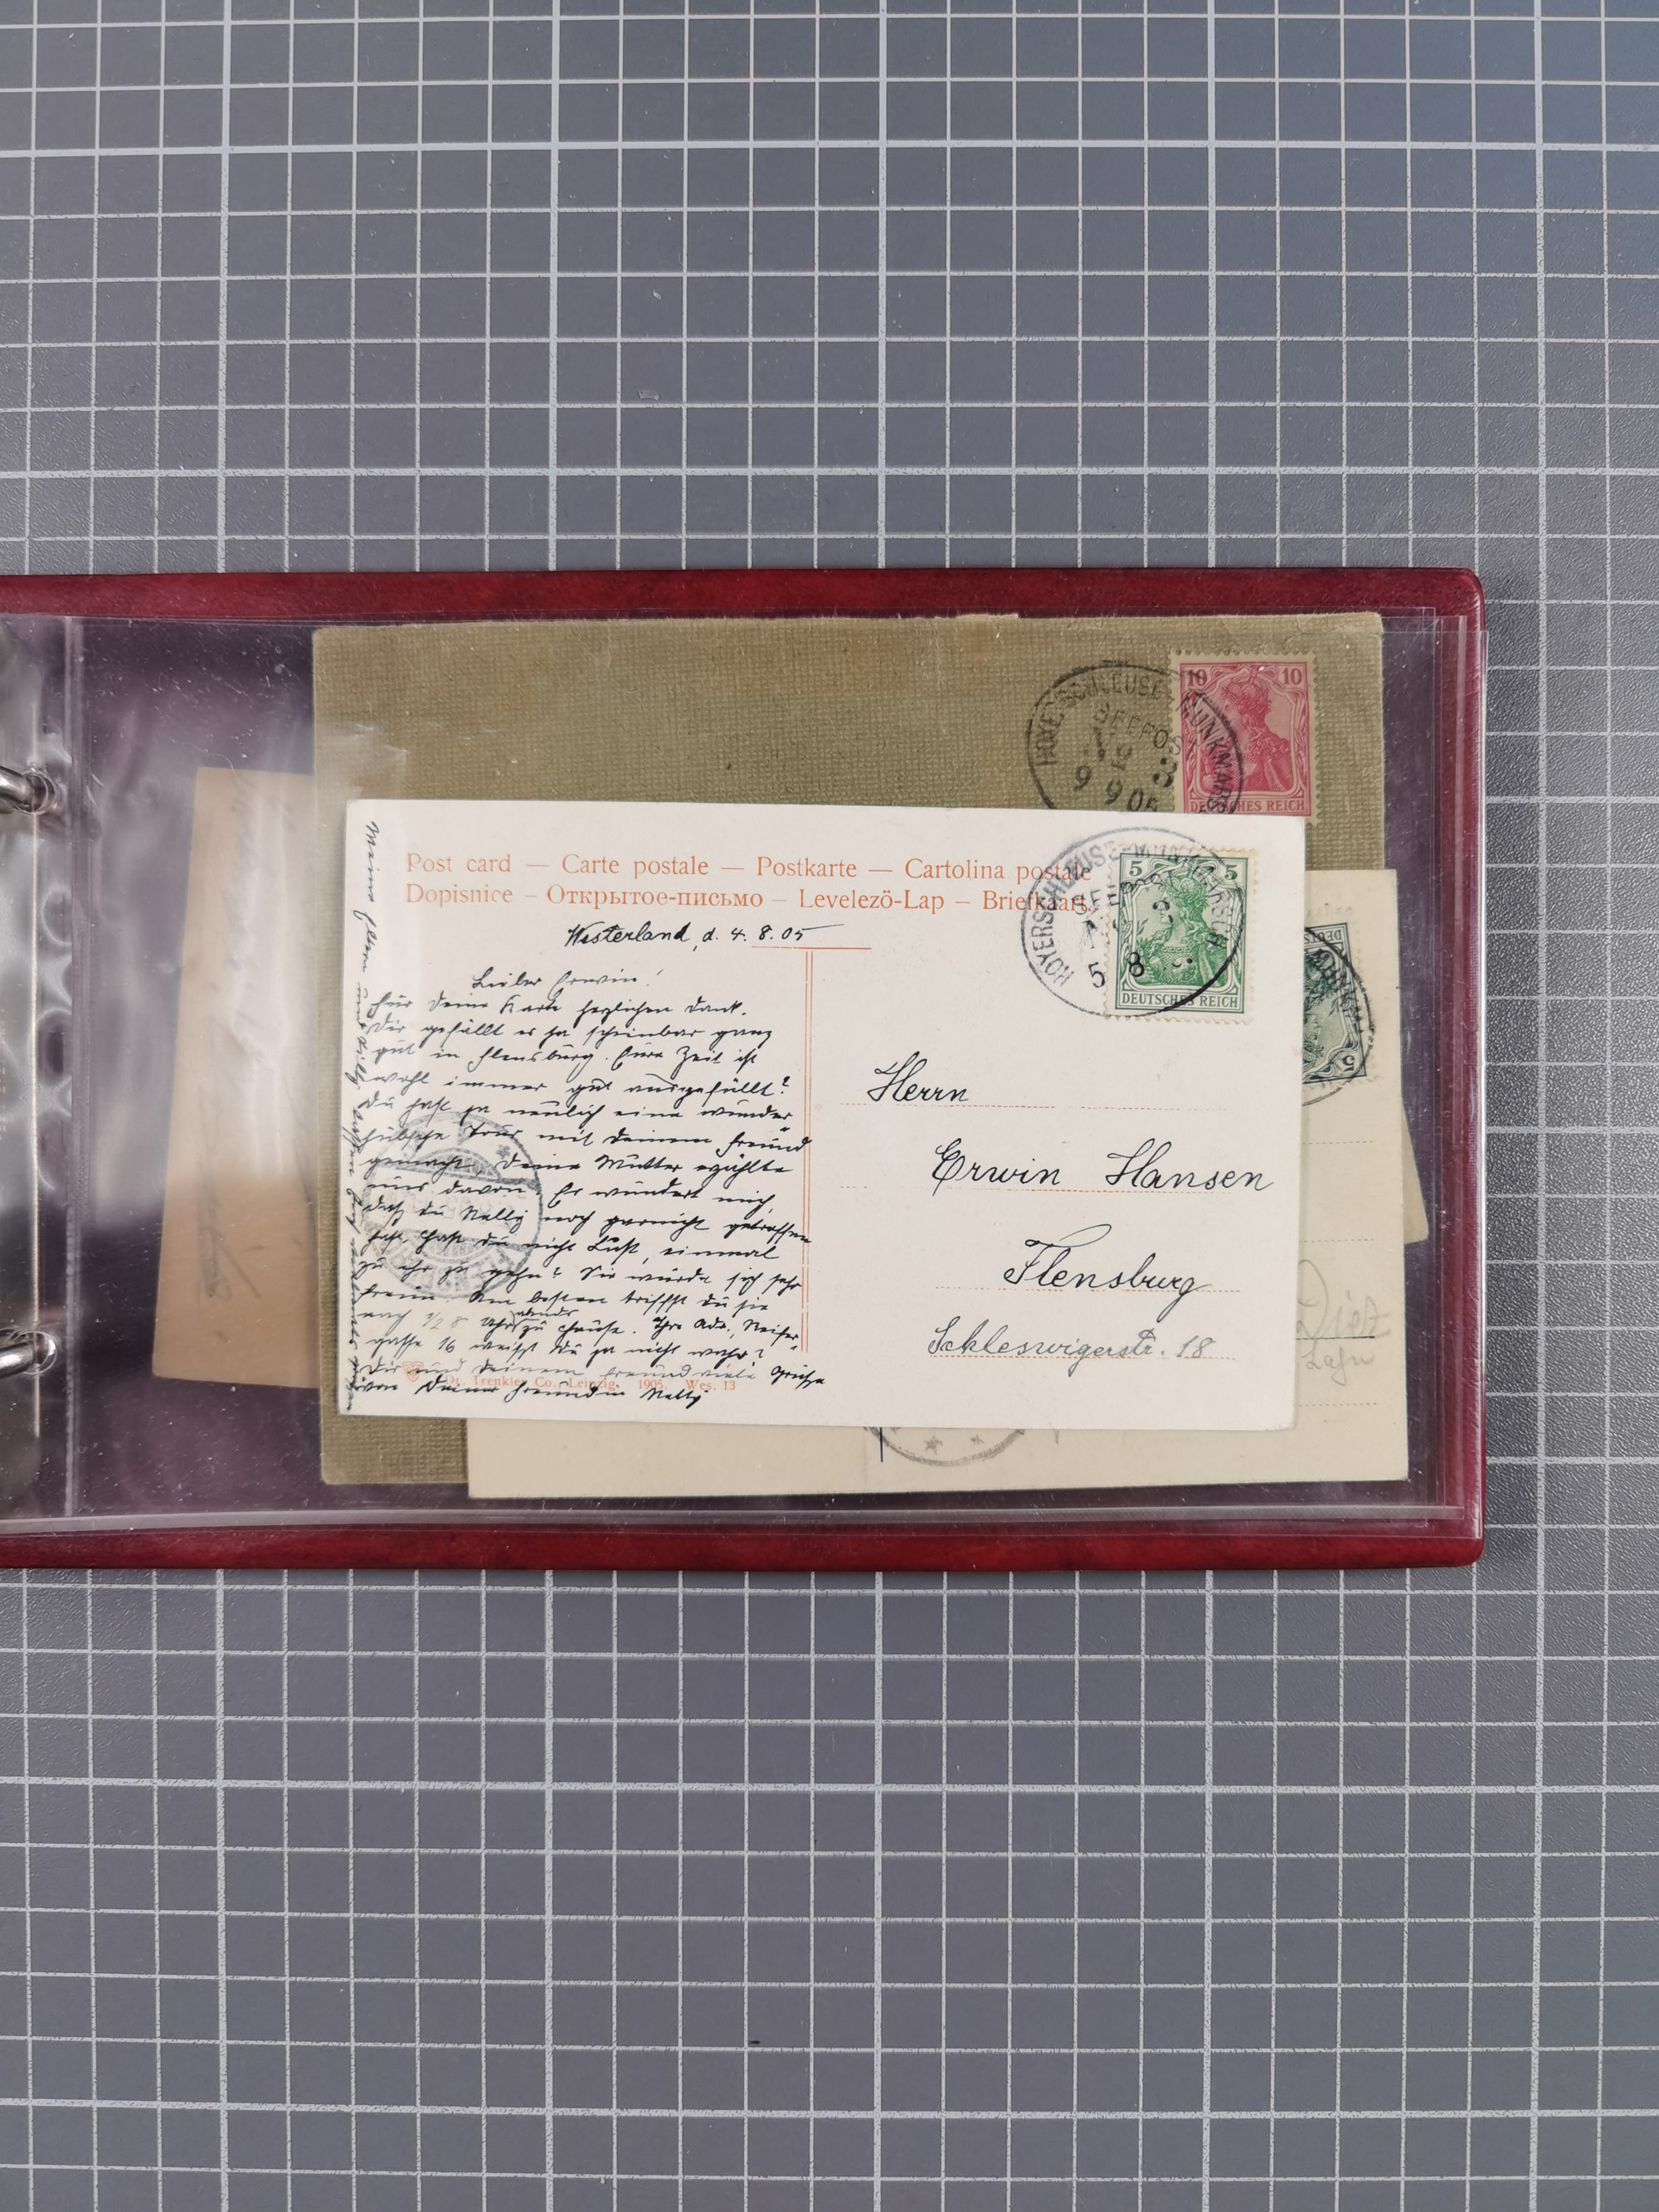 HOYERSCHLEUSE MUNKMARSCH
SEEPOST
9 9 05
10 10
DEUTSCHES REICH
Post card — Carte postale — Postkarte — Cartolina postale
Dopisnice — Открытое-письмо — Levelezö-Lap — Briefkaart
HOYERSCHLEUSE-MUNKMARSCH
SEEPOST
5 8
5 5
DEUTSCHES REICH
Westerland, d. 4. 8. 05
Lieber Erwin!
Für Deine Karte herzlichen Dank.
Dir gefällt es ja scheinbar ganz
gut in Flensburg. Eure Zeit ist
wohl immer gut ausgefüllt?
Du hast ja neulich eine wunder-
hübsche Tour mit Deinem Freund
gemacht, Deine Mutter erzählte
uns davon. Es wundert mich,
daß Du Nelly noch garnicht getroffen
hast, hast Du nicht Lust, einmal
zu ihr zu gehn? Sie würde sich sehr
freun. Am besten triffst Du sie
nach 1/2 8 Uhr abends zu Hause. Ihre Adr.,
gasse 16 weißt Du ja nicht wahr?
Dir und Deinem Freund viele Grüße
von Deiner Freundin Nelly
Meine Eltern und
Dr. Trenkler Co., Leipzig. 1905. Wes. 13
Herrn
Erwin Hansen
Flensburg
Schleswigerstr. 18
5
Diez
Lahn